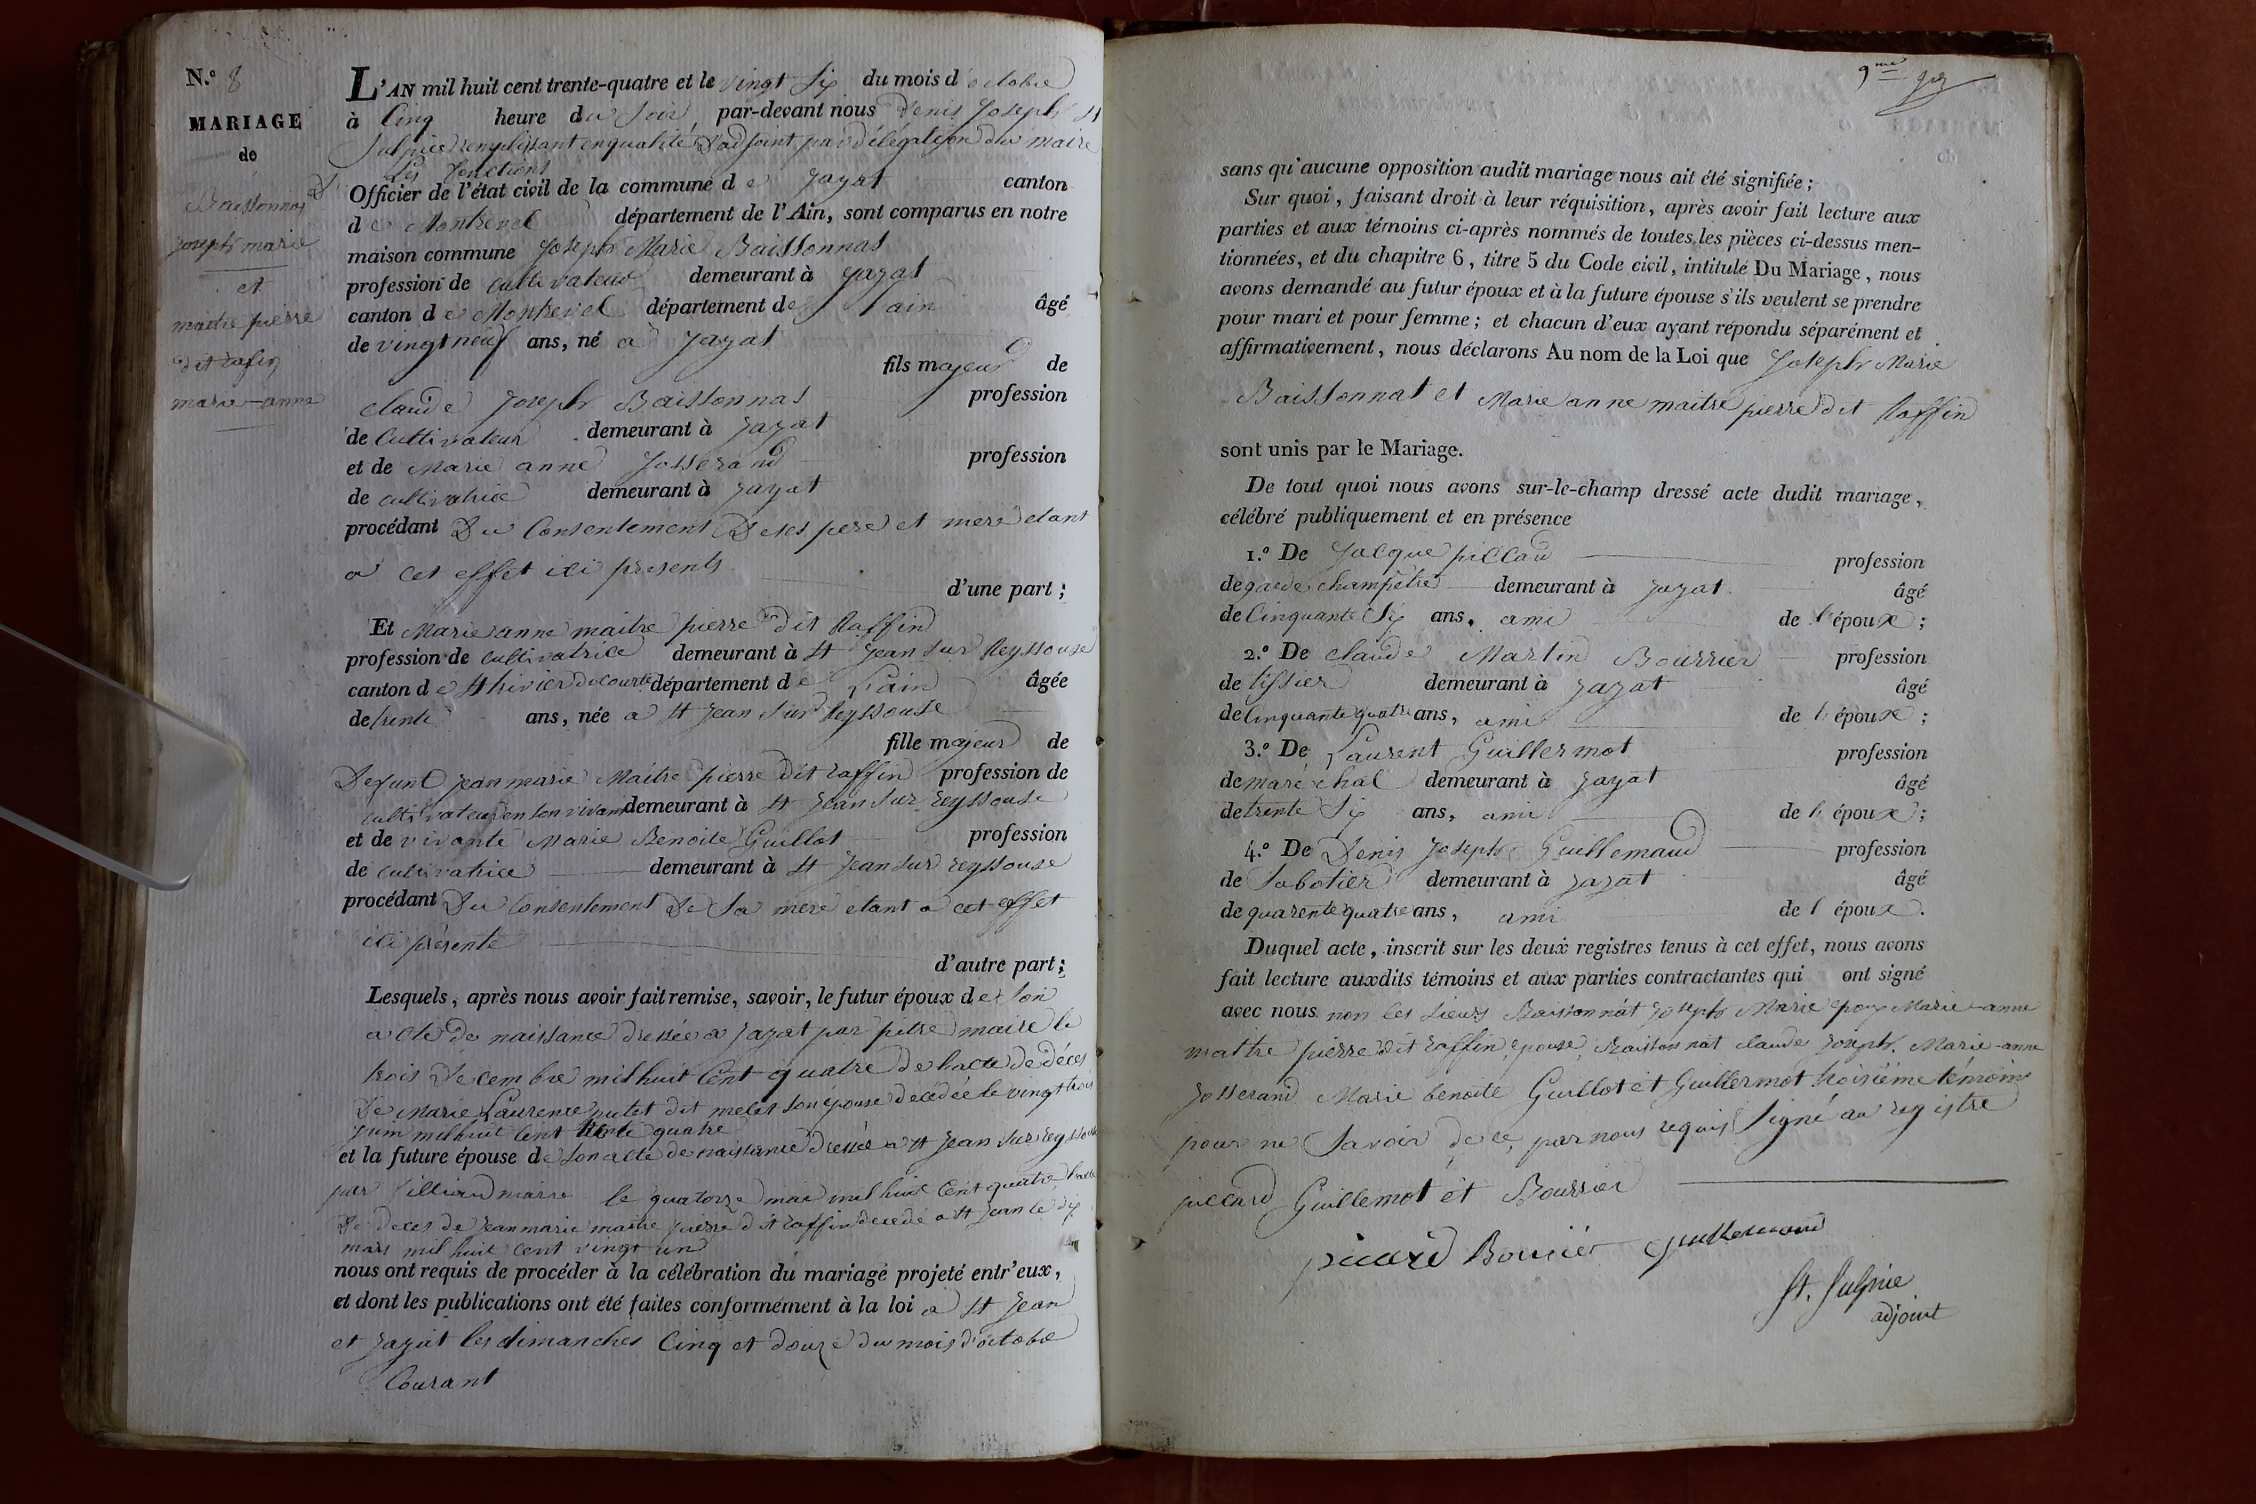 N.º 8
MARIAGE
de
Baissonnas
joseph marie
et
maitre pierre
dit rafin
marie-anne
L'AN mil huit cent trente-quatre et le vingt Six du mois d'octobre
à Cinq heure du Soir, par-devant nous Denis Joseph St
Sulpice remplissant en qualité D'adjoint par délégation du maire
Les fonctions
Officier de l'état civil de la commune de Jayat canton
de Montrevel département de l'Ain, sont comparus en notre
maison commune Joseph Marie Baissonnas
profession de cultivateur demeurant à Jayat
canton de Montrevel département de l'ain âgé
de vingt neuf ans, né a Jayat
fils majeur de
claude Joseph Baissonnas profession
de Cultivateur demeurant à Jayat
et de Marie anne Josserand profession
de cultivatrice demeurant à Jayat
procédant Du Consentement De ses pere et mere etant
a cet effet ici presents
d'une part ;
Et Marie anne maitre pierre dit Raffin
profession de cultivatrice demeurant à St Jean sur Reyssouse
canton de St trivier de courte département de L'ain âgée
de trente ans, née a St Jean sur Reyssouse
fille majeur de
Defunt jean marie Maitre pierre dit raffin profession de
cultivateur en son vivant demeurant à St Jean sur reyssouse
et de vivante Marie Benoite Guillot profession
de cultivatrice demeurant à St Jean sur reyssouse
procédant Du Consentement De Sa mere etant a cet effet
ici présente
d'autre part ;
Lesquels, après nous avoir fait remise, savoir, le futur époux de Son
acte de naissance dressée a Jayat par pitre maire le
trois Décembre mil huit Cent quatre de lacte de déces
De Marie Laurence putet dit melet son épouse décédée le vingt trois
juin mil huit Cent trente quatre
et la future épouse de son acte de naissance dressée a St Jean sur reyssouse
par maire le quatorze mai mil huit Cent quatre
De deces de Jean marie maitre pierre dit raffin decedé a St Jean le dix
mars mil huit cent vingt un
nous ont requis de procéder à la célébration du mariage projeté entr'eux,
et dont les publications ont été faites conformément à la loi a St Jean
et Jayat les dimanches Cinq et douze du mois d'octobre
Courant
9me
sans qu'aucune opposition audit mariage nous ait été signifiée ;
Sur quoi, faisant droit à leur réquisition, après avoir fait lecture aux
parties et aux témoins ci-après nommés de toutes les pièces ci-dessus men-
tionnées, et du chapitre 6, titre 5 du Code civil, intitulé Du Mariage, nous
avons demandé au futur époux et à la future épouse s'ils veulent se prendre
pour mari et pour femme ; et chacun d'eux ayant répondu séparément et
affirmativement, nous déclarons Au nom de la Loi que Joseph Marie
Baissonnat et Marie anne maitre pierre dit Raffin
sont unis par le Mariage.
De tout quoi nous avons sur-le-champ dressé acte dudit mariage,
célébré publiquement et en présence
1.º De Jacque piccard profession
de garde champêtre demeurant à Jayat âgé
de Cinquante Six ans, ami de l'époux ;
2.º De claude Martin Bourrier profession
de tissier demeurant à Jayat âgé
de Cinquante quatre ans, ami de l'époux ;
3.º De Laurent Guillermot profession
de maréchal demeurant à Jayat âgé
de trente Six ans, ami de l'époux ;
4.º De Denis Joseph Guillemaud profession
de Sabotier demeurant à Jayat âgé
de quarente quatre ans, ami de l'époux.
Duquel acte, inscrit sur les deux registres tenus à cet effet, nous avons
fait lecture auxdits témoins et aux parties contractantes qui ont signé
avec nous non les sieurs Baissonnat joseph Marie époux Marie-anne
maitre pierre dit raffin épouse, Baissonnat claude joseph, Marie-anne
Josserand Marie benoite Guillot et Guillermot troisième témoins
pour ne Savoir de ce par nous requis Signé au registre
piccard Guillemot et Bourrier
picard Bourier Guillemaud
St. Sulpice
adjoint